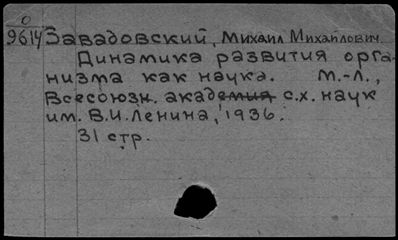 О
9614 Завадовский, Михаил Михайлович
Динамика развития орга-
низма как наука. М.-Л.,
Всесоюзн. академия с.х. наук
им. В.И.Ленина, 1936.
31 стр.